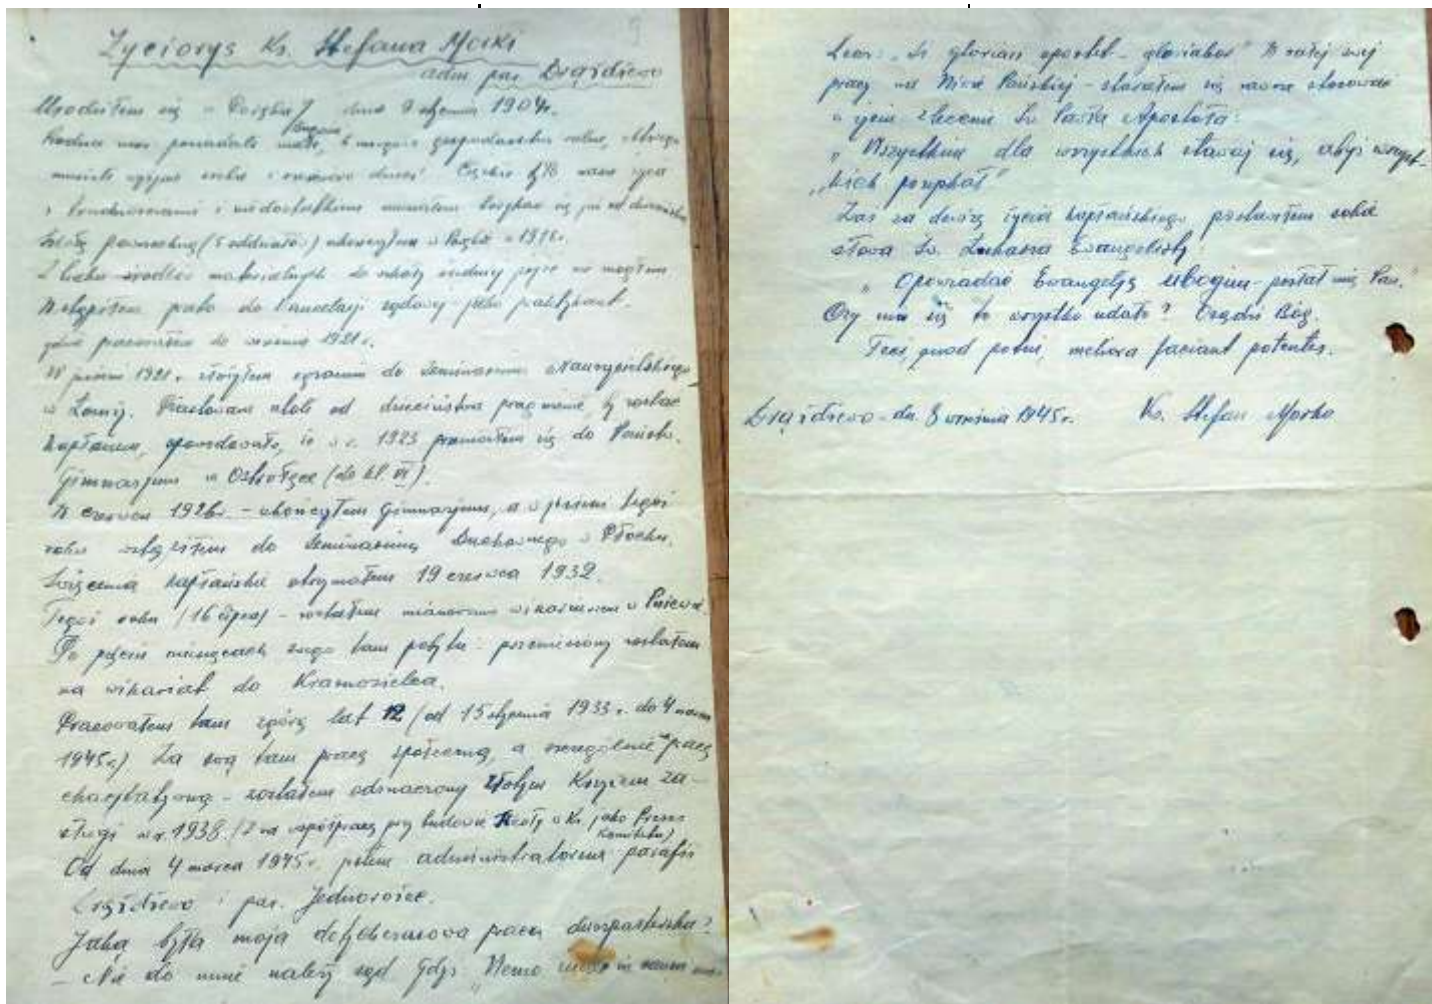 Życiorys Ks. Stefana Morki
adm par Drążdżewo
Urodziłem się w dnia 9 stycznia 1904 r.
Rodzice moi posiadali małe, gospodarstwo rolne, z którego
musieli siebie i dzieci. Ciężko było nam żyć
z i niedostatkiem musiałem się już od dzieciństwa
Szkołę powszechną (5 oddziałów) ukończyłem w 1918 r.
Z braku środków materialnych do szkoły średniej pójść nie mogłem
Wstąpiłem przeto do kancelarji sądowej jako praktykant.
gdzie pracowałem do 1921 r.
W 1921 r. złożyłem egzamin do Seminarium Nauczycielskiego
w Łomży. od dzieciństwa pragnienie, by zostać
kapłanem, spowodowało, że w r. 1923 przeniosłem się do Państw.
Gimnazjum w Ostrołęce (do kl. VI).
W czerwcu 1926 r. – ukończyłem Gimnazjum, a w jesieni tegoż
roku wstąpiłem do Seminarium Duchownego w Płocku.
Święcenia kapłańskie otrzymałem 19 czerwca 1932.
Tegoż roku (16 lipca) – zostałem mianowany wikariuszem w
Po pięciu miesiącach mego tam pobytu przeniesiony zostałem
na wikariat do Krasnosielca.
Pracowałem tam zgórą lat 12 (od 15 stycznia 1933 r. do 4 marca
1945 r.) Za swą tam pracę społeczną, a szczególnie pracę
charytatywną – zostałem odznaczony Złotym Krzyżem Za-
sługi w r. 1938. /Za współpracę przy budowie Szkoły w Kr. jako Prezes
Komitetu)
Od dnia 4 marca 1945 r. pełnię administratorem parafii
Drążdżewo i par. Jednorożec.
Jaką była moja dotychczasowa praca duszpasterska?
– Nie do mnie należy sąd gdyż "Nemo in
" Si gloriari oportet – gloriabor" W całej swej
pracy na Niwie Pańskiej – starałem się zawsze stosować
w życiu zlecenie Św. Pawła Apostoła:
"Wszystkim dla wszystkich stawaj się, abyś wszyst-
"kich pozyskał"
Zaś za dewizę życia kapłańskiego postawiłem sobie
słowa Św. Łukasza Ewangelisty:
"Opowiadać Ewangelję ubogim – posłał mię Pan."
Czy mi się to wszystko udało? Osądzi Bóg.
Feci, quod potui, meliora faciant potentes.
Drążdżewo – dn. 8 września 1945 r. Ks. Stefan Morko